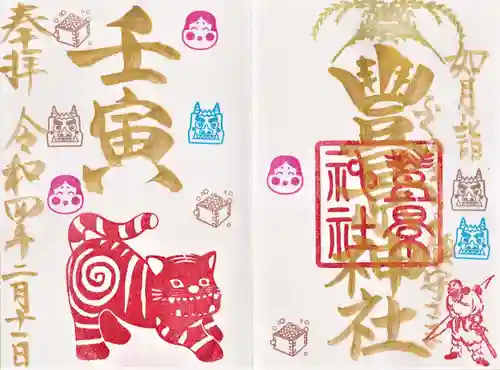 如月詣
豊景神社
豊景
神社
壬寅
奉拝
令和四年二月十一日